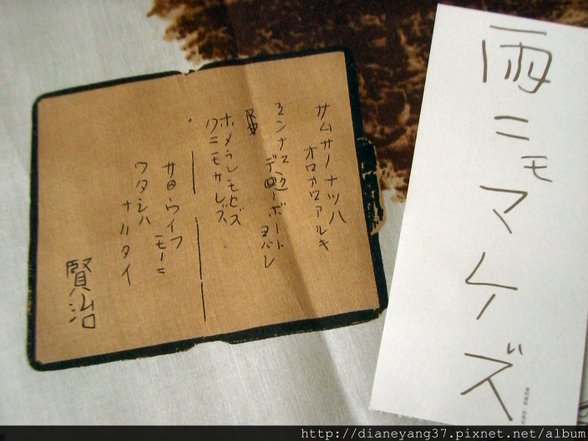 雨ニモマケズ
サムサノナツハ
オロオロアルキ
ミンナニ
デクノボート
ヨバレ
ホメラレモセズ
クニモサレズ
サウイフ
モノニ
ワタシハ
ナリタイ
賢治
http://dianeyang37.pixnet.net/album